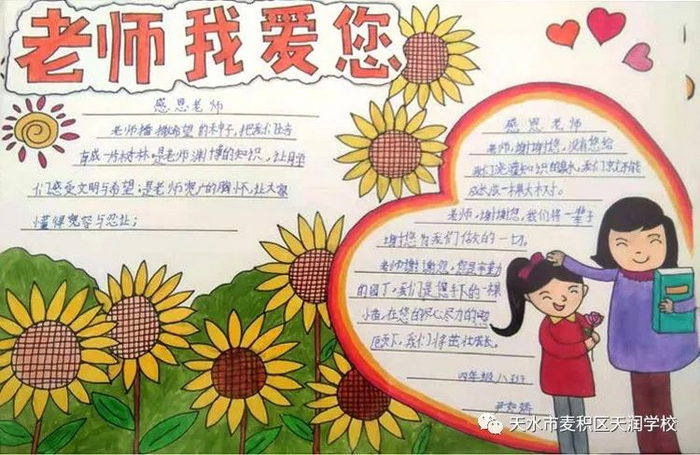 老师我爱您
感恩老师
老师播撒希望的种子,把我们培
育成一片树林,是老师渊博的知识,让
们感受文明与希望;是老师宽广的胸怀,让大家
懂得宽容与忍让;
感恩老师
老师,谢谢您,没有您给
我们浇灌知识的泉水,我们就不能
成长成一棵大树。
老师,谢谢您,我们将一辈子
谢您为我们做的一切。
老师谢谢您,您是辛勤
的园丁,我们是您手下的一棵
小苗,在您的尽心尽力的照
顾下,我们将茁壮成长。
四年级八班
天水市麦积区天润学校